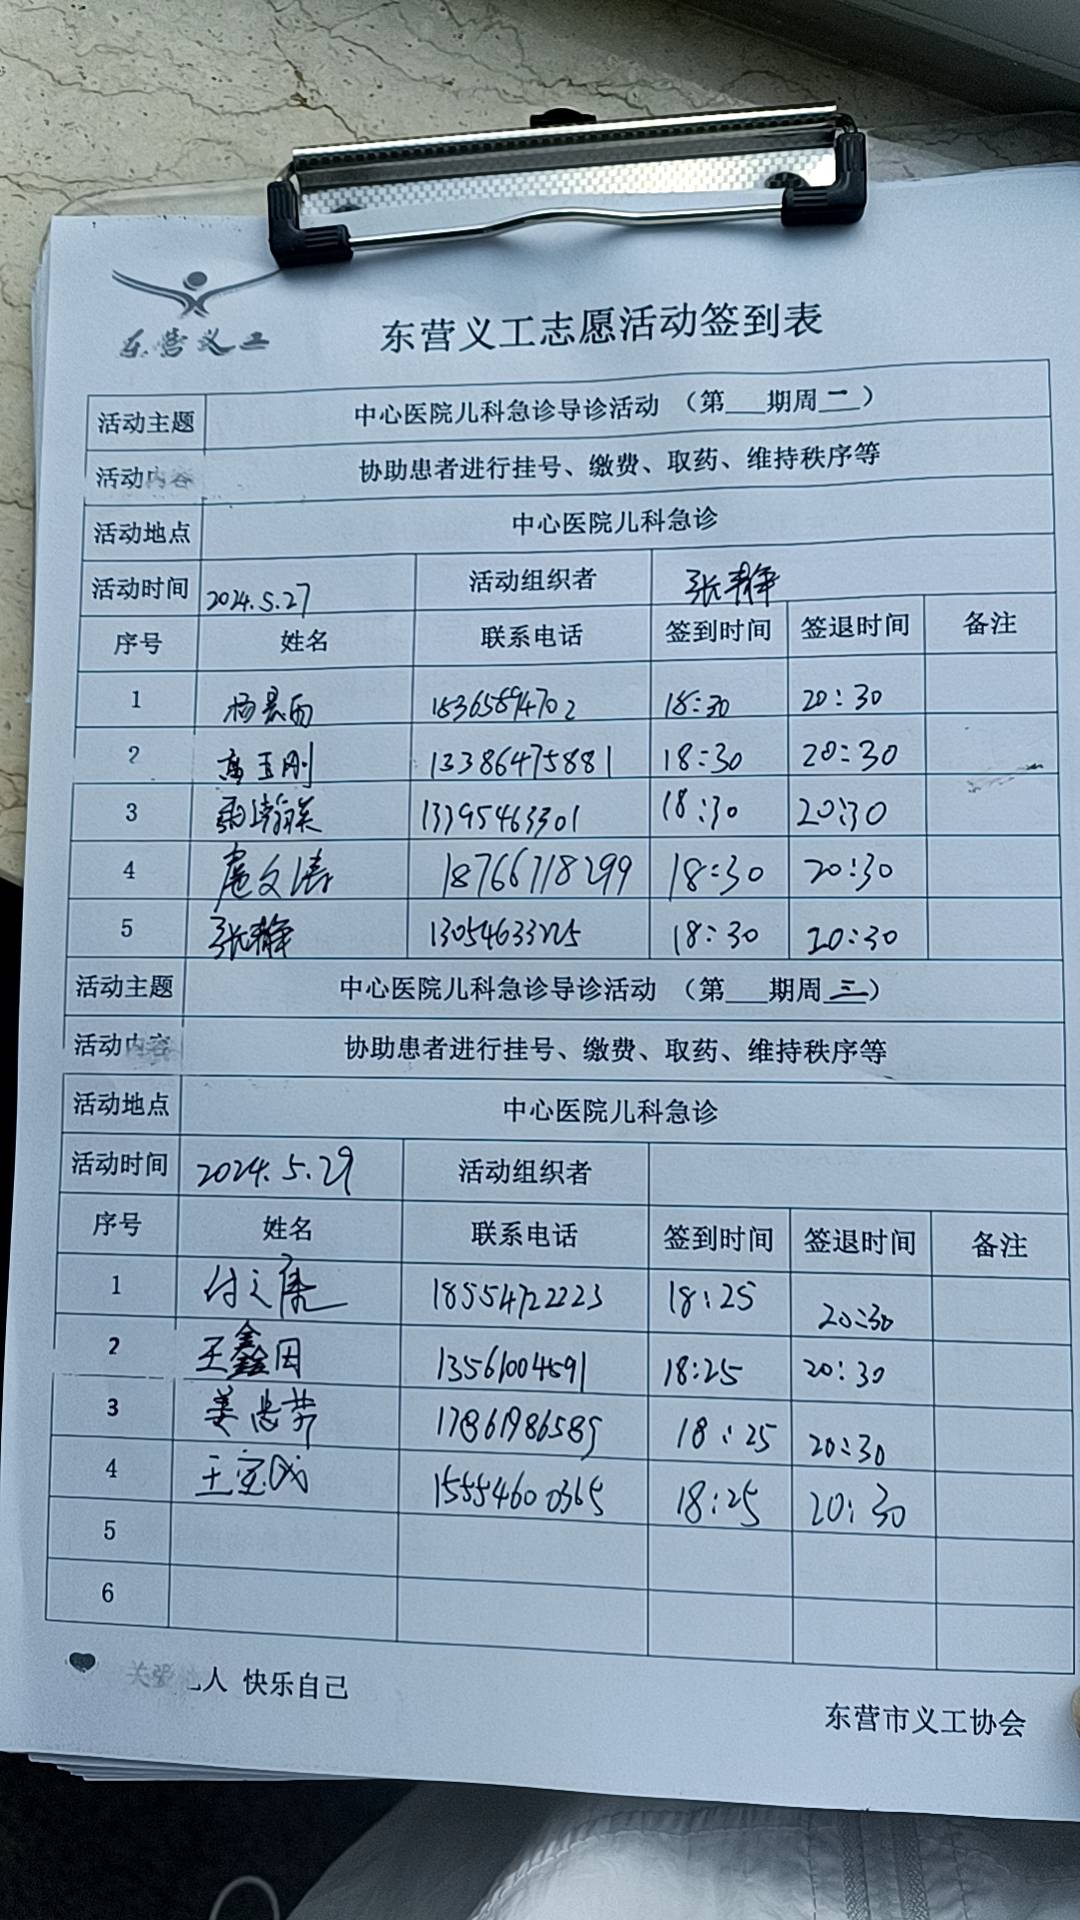 东营义工
东营义工志愿活动签到表
活动主题 中心医院儿科急诊导诊活动 （第___期周二）
活动内容 协助患者进行挂号、缴费、取药、维持秩序等
活动地点 中心医院儿科急诊
活动时间 2024.5.27 活动组织者 张静
序号 姓名 联系电话 签到时间 签退时间 备注
1 杨景雨 15365894702 18:30 20:30
2 高玉刚 13386475881 18:30 20:30
3 13395463301 18:30 20:30
4 扈文涛 18766718299 18:30 20:30
5 张静 13054633225 18:30 20:30
活动主题 中心医院儿科急诊导诊活动 （第___期周三）
活动内容 协助患者进行挂号、缴费、取药、维持秩序等
活动地点 中心医院儿科急诊
活动时间 2024.5.29 活动组织者
序号 姓名 联系电话 签到时间 签退时间 备注
1 付文康 18554722223 18:25 20:30
2 王鑫田 13561004591 18:25 20:30
3 17861986585 18:25 20:30
4 15554600365 18:25 20:30
5
6
关爱他人 快乐自己
东营市义工协会